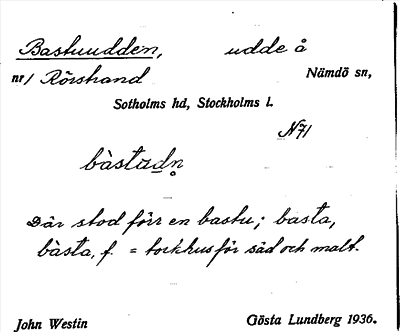 Bastuudden, udde å
nr/ Rörstrand Nämdö sn,
Sotholms hd, Stockholms l.
N71
bàstadn̥
Där stod förr en bastu; basta,
bàsta, f. = torkhus för säd och malt.
John Westin Gösta Lundberg 1936.